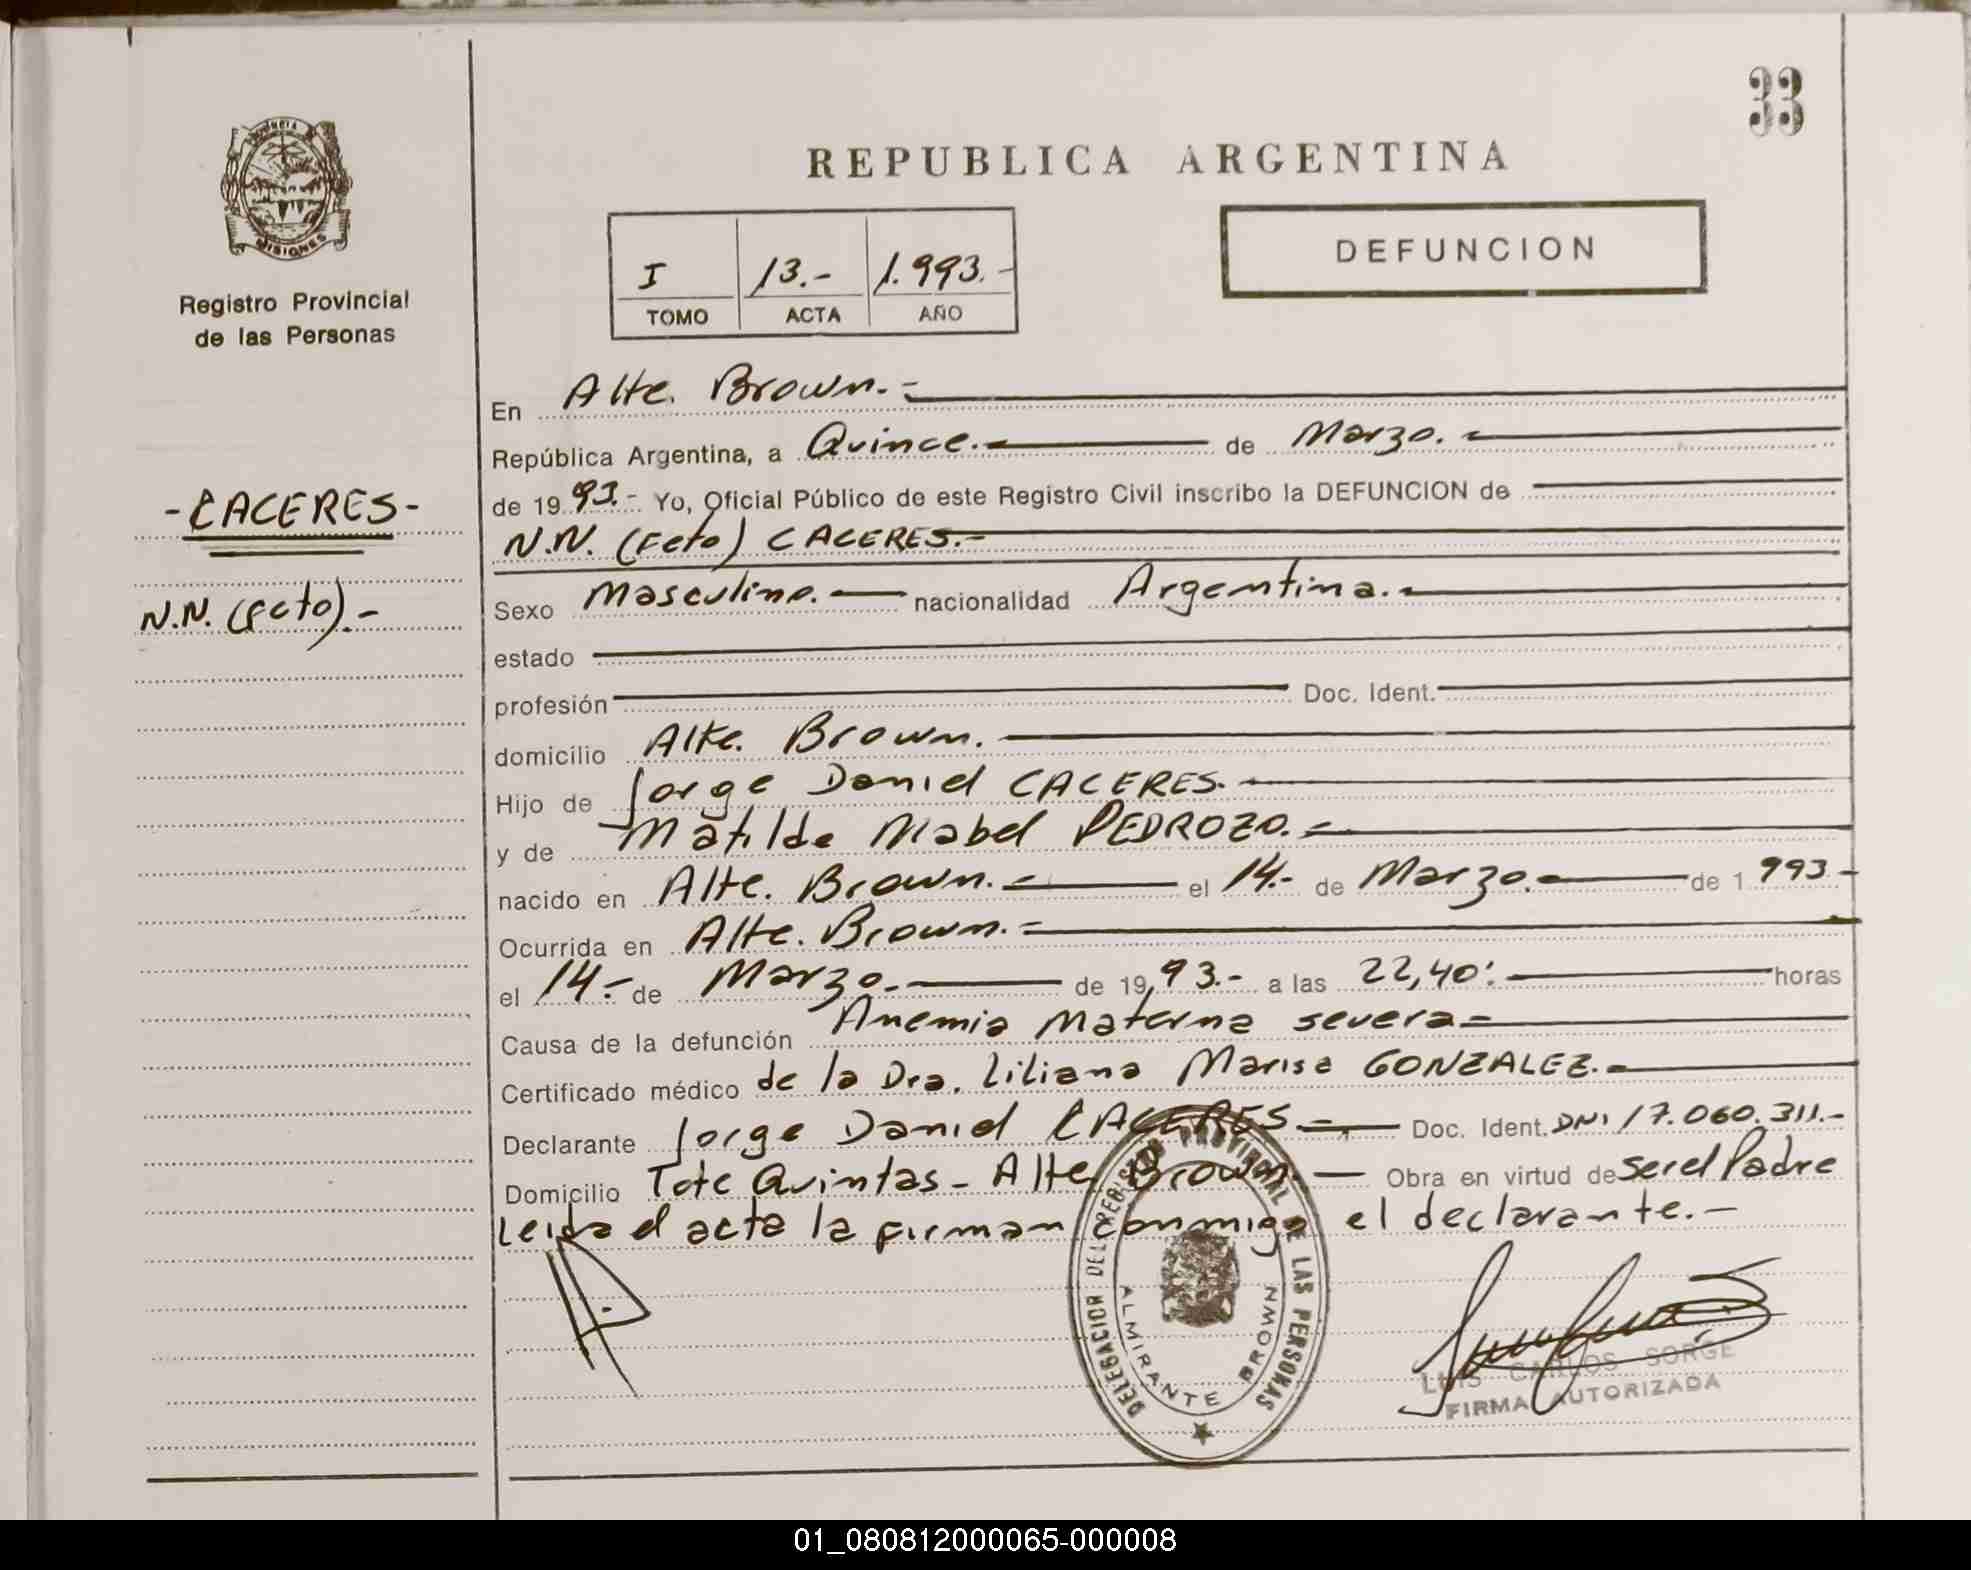 33
PROVINCIA DE
MISIONES
Registro Provincial
de las Personas
REPUBLICA ARGENTINA
DEFUNCION
I 13.- 1.993.-
TOMO ACTA AÑO
-CACERES-
N.N. (feto).-
En Alte. Brown.-
República Argentina, a Quince.- de Marzo.-
de 19 93.- Yo, Oficial Público de este Registro Civil inscribo la DEFUNCION de
N.N. (feto) CACERES.-
Sexo Masculino.- nacionalidad Argentina.-
estado
profesión Doc. Ident.
domicilio Alte. Brown.
Hijo de Jorge Daniel CACERES.-
y de Matilde Mabel PEDROZO.-
nacido en Alte. Brown.- el 14.- de Marzo.- de 1 993.-
Ocurrida en Alte. Brown.-
el 14.- de Marzo.- de 19 93.- a las 22,40'. horas
Causa de la defunción Anemia Materna severa-
Certificado médico de la Dra. Liliana Marisa GONZALEZ.-
Declarante Jorge Daniel CACERES Doc. Ident. DNI 17.060.311.-
Domicilio Tote Quintas - Alte Brown.- Obra en virtud de ser el Padre
Leida el acta la firman conmigo el declarante.-
DELEGACION DEL REGISTRO PROVINCIAL DE LAS PERSONAS
ALMIRANTE BROWN
LUIS CARLOS SORGE
FIRMA AUTORIZADA
01_080812000065-000008